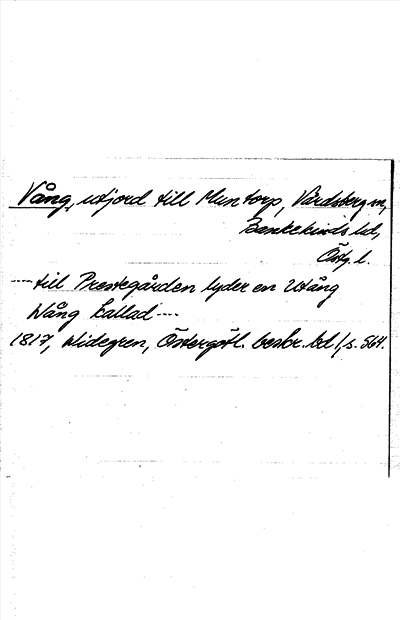 Vång, utjord till Muntorp, Vårdsberg sn,
Bankekinds hd,
Östg. l.
---- till Prestegården lyder en Utäng
Wång kallad ----
1817, Widegren, Östergötl. beskr. bd 1, s. 564.